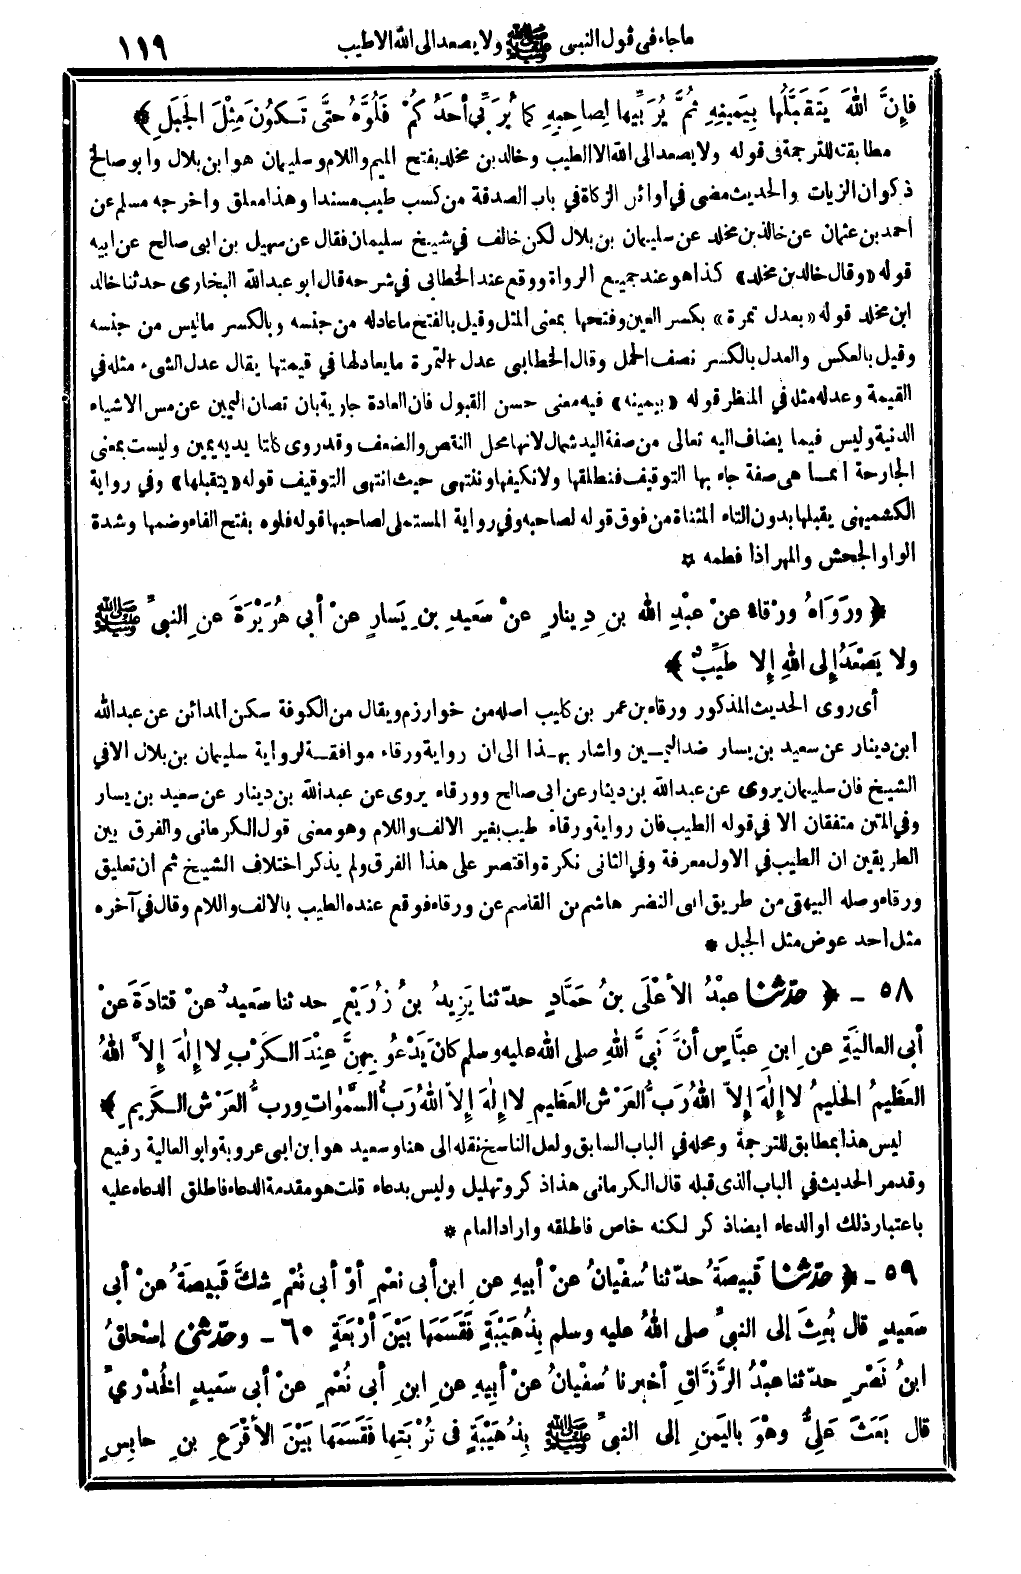 ماجاء في قول النبي ﷺ ولا يصعد الى الله الا طيب ١١٩
فإنَّ اللهَ يَتَقَبَّلُها بِيَمينِهِ ثُمَّ يُرَبِّيها لِصاحِبِهِ كما يُرَبِّي أحَدُكُمْ فَلُوَّهُ حتَّى تَكُونَ مِثْلَ الجَبَلِ ﴾
مطابقته للترجمة في قوله ولا يصعد الى الله الا الطيب وخالد بن مخلد بفتح الميم واللام وسليمان هو ابن بلال وابو صالح
ذكوان الزيات والحديث مضى في أوائل الزكاة في باب الصدقة من كسب طيب مسندا وهذا معلق واخرجه مسلم عن
أحمد بن عثمان عن خالد بن مخلد عن سليمان بن بلال لكن خالف في شيخ سليمان فقال عن سهيل بن ابى صالح عن ابيه
قوله «وقال خالد بن مخلد» كذا هو عند جميع الرواة ووقع عند الخطابي في شرحه قال ابو عبدالله البخارى حدثنا خالد
ابن مخلد قوله «بعدل تمرة» بكسر العين وفتحها بمعنى المثل وقيل بالفتح ما عادله من جنسه وبالكسر ما ليس من جنسه
وقيل بالعكس والعدل بالكسر نصف الحمل وقال الخطابى عدل التمرة ما يعادلها في قيمتها يقال عدل الشىء مثله في
القيمة وعدله مثله في المنظر قوله «بيمينه» فيه معنى حسن القبول فان العادة جارية بان تصان اليمين عن مس الاشياء
الدنية وليس فيما يضاف اليه تعالى من صفة اليد شمال لانها محل النقص والضعف وقد روى كلتا يديه يمين وليست بمعنى
الجارحة انما هى صفة جاء بها التوقيف فنطلقها ولا نكيفها وننتهى حيث انتهى التوقيف قوله «يتقبلها» وفي رواية
الكشميهنى يقبلها بدون التاء المثناة من فوق قوله لصاحبه وفي رواية المستملى لصاحبها قوله فلوه بفتح الفاء وضمها وشدة
الواو الجحش والمهر اذا فطمه *
﴿ ورَوَاهُ ورْقاءُ عنْ عبْدِ الله بن دِينارٍ عنْ سَعيدِ بنِ يَسارٍ عنْ أبي هُرَيْرَةَ عَنِ النبيِّ ﷺ
ولا يَصْعَدُ إلى اللهِ إلا طَيِّبٌ ﴾
أى روى الحديث المذكور ورقاء بن عمر بن كليب اصله من خوارزم ويقال من الكوفة سكن المدائن عن عبدالله
ابن دينار عن سعيد بن يسار ضد اليمين واشار بهذا الى ان رواية ورقاء موافقة لرواية سليمان بن بلال الا في
الشيخ فان سليمان يروى عن عبدالله بن دينار عن ابى صالح وورقاء يروى عن عبدالله بن دينار عن سعيد بن يسار
وفي المتن متفقان الا في قوله الطيب فان رواية ورقاء طيب بغير الالف واللام وهو معنى قول الكرمانى والفرق بين
الطريقين ان الطيب في الاول معرفة وفي الثانى نكرة واقتصر على هذا الفرق ولم يذكر اختلاف الشيخ ثم ان تعليق
ورقاء وصله البيهقى من طريق ابى النضر هاشم بن القاسم عن ورقاء فوقع عنده الطيب بالالف واللام وقال في آخره
مثل احد عوض مثل الجبل *
٥٨ ـ ﴿ حدّثنا عبْدُ الأعْلَى بنُ حَمَّادٍ حدّثنا يَزِيدُ بنُ زُرَيْعٍ حدثنا سَعيدٌ عنْ قتادَةَ عنْ
أبي العالِيَةِ عنِ ابنِ عبَّاسٍ أنَّ نَبيَّ اللهِ صلى الله عليه وسلم كانَ يَدْعُو بِهِنَّ عِنْدَ الكَرْبِ لا إلٰهَ إلاَّ اللهُ
العَظيمُ الحَليمُ لا إلٰهَ إلاّ اللهُ رَبُّ العَرْشِ العظيمِ لا إلٰهَ إلاّ اللهُ رَبُّ السَّمٰواتِ وربُّ العَرْشِ الكَريمِ ﴾
ليس هذا بمطابق للترجمة ومحله في الباب السابق ولعل الناسخ نقله الى هنا وسعيد هو ابن ابى عروبة وابو العالية رفيع
وقد مر الحديث في الباب الذى قبله قال الكرمانى هذا ذكر وتهليل وليس بدعاء قلت هو مقدمة الدعاء فاطلق الدعاء عليه
باعتبار ذلك او الدعاء ايضا ذكر لكنه خاص فاطلقه واراد العام *
٥٩ ـ ﴿ حدّثنا قَبيصَةُ حدّثنا سُفْيانُ عنْ أبيهِ عنِ ابنِ أبى نعْمٍ أوْ أبي نُعْمٍ شكَّ قَبيصَةُ عنْ أبي
سَعيدٍ قال بُعِثَ إلى النبيِّ صلى اللهُ عليه وسلم بِذُهَيْبَةٍ فَقَسَمَها بَيْنَ أرْبَعَةٍ ٦٠ ـ وحدّثنى إسْحاقُ
ابنُ نَصْرٍ حدّثنا عبْدُ الرَّزَّاقِ أخبرنا سُفْيانُ عنْ أبِيهِ عنِ ابنِ أبي نُعْمٍ عنْ أبي سَعيدٍ الخُدْرِيِّ
قال بَعَثَ عَلِيٌّ وهْوَ باليَمَنِ إلى النبيِّ ﷺ بِذُهَيْبَةٍ في تُرْبَتِها فَقَسَمَها بَيْنَ الأقْرَعِ بنِ حابِسٍ